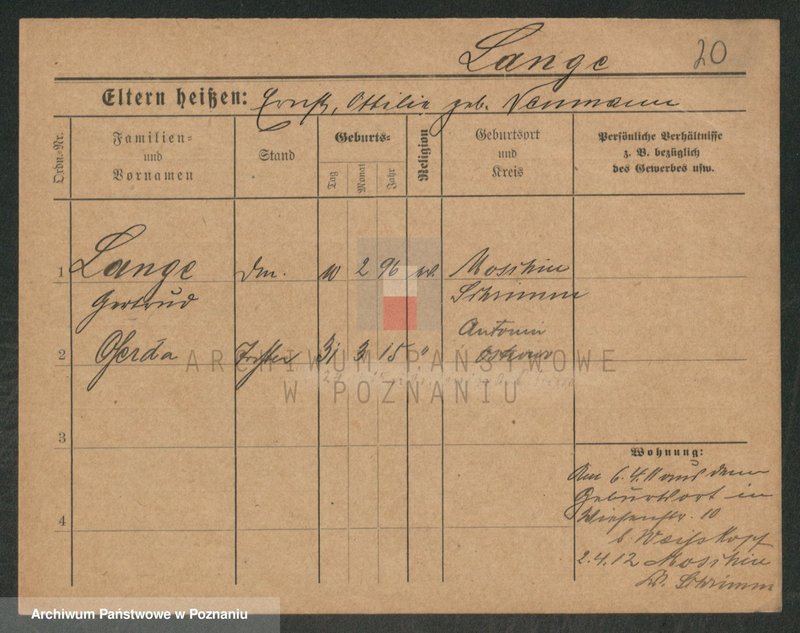 Lange 20
Eltern heißen: Ernst, Ottilie geb. Neumann
Ordn.-Nr.
Familien-
und
Vornamen
Stand
Geburts-
Tag
Monat
Jahr
Religion
Geburtsort
und
Kreis
Persönliche Verhältnisse
z. B. bezüglich
des Gewerbes usw.
1 Lange 10 2 96 ev. Moschin
Gertrud Schrimm
Antonin
2 Gerda 31 3 15 "
ARCHIWUM PAŃSTWOWE
W POZNANIU
3
Wohnung:
Am 6.4.11 aus dem
Geburtsort in
Wiesenstr. 10
b. Weißkopf
4
2.4.12 Moschin
Schrimm
Archiwum Państwowe w Poznaniu